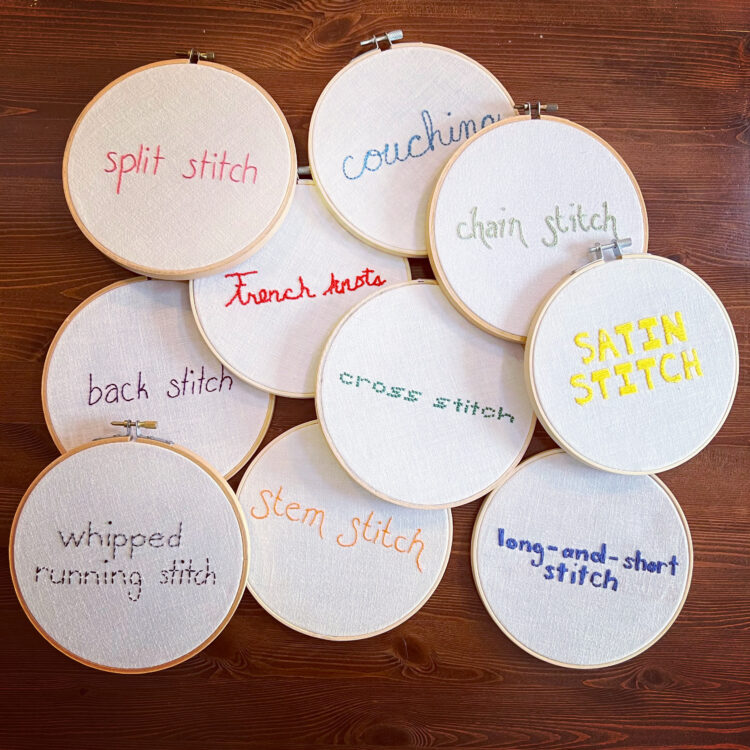 split stitch
couching
chain stitch
French knots
SATIN
STITCH
back stitch
cross stitch
stem stitch
whipped
running stitch
long-and-short
stitch